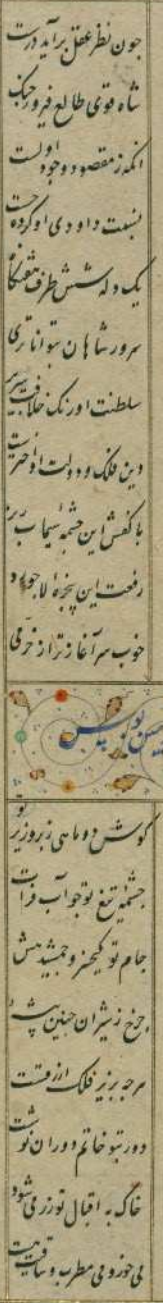 چون نظر عقل برآید درست
شاه قوی طالع فیروز جنگ
آنکه ز مقصود وجود اولست
نسبت داودی او کرده چست
یک دله شش طرف هفتگاه
سرور شاهان بتوانا تری
سلطنت اورنگ خلافت سریر
دین فلک و دولت او اخترست
با کفش این چشمه سیماب ریز
رفعت این پنجره لاجورد
خوب سرآغازتر از خرمی
گوش دو ماهی زبر و زیر تو
چشمه تیغ تو چو آب فرات
جام تو کیخسرو جمشید هش
چرخ ز شیران چنین بیشه
هرچه بزیر فلک ازرقست
دور بتو خاتم دوران نوشت
خاک به اقبال تو زر می شود
می خور می مطرب و ساقیت هست